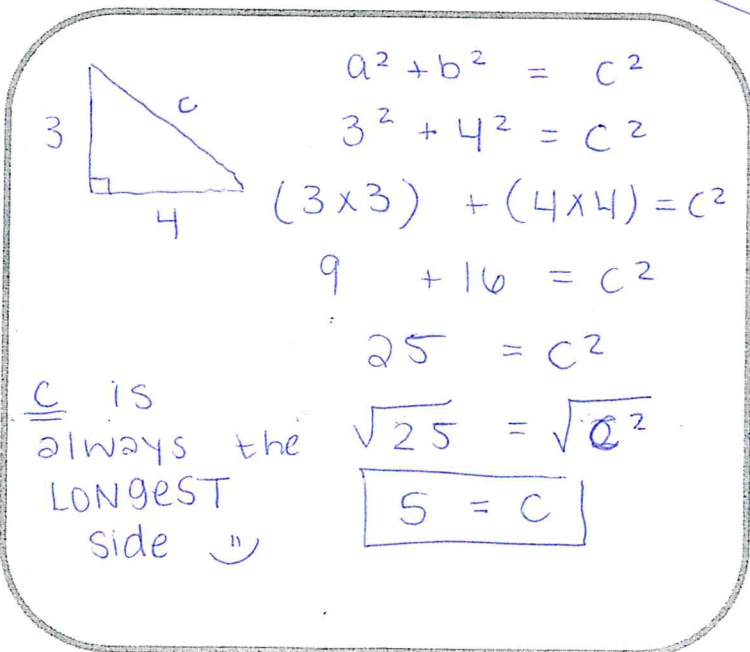 3
c
4
a² + b² = c²
3² + 4² = c²
(3×3) + (4×4) = c²
9 + 16 = c²
25 = c²
√25 = √c²
5 = c
c is
always the
LONgeST
side